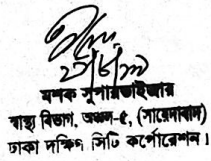 মশক সুপারভাইজার
স্বাস্থ্য বিভাগ, অঞ্চল-৫, (সায়েদাবাদ)
ঢাকা দক্ষিণ সিটি কর্পোরেশন।